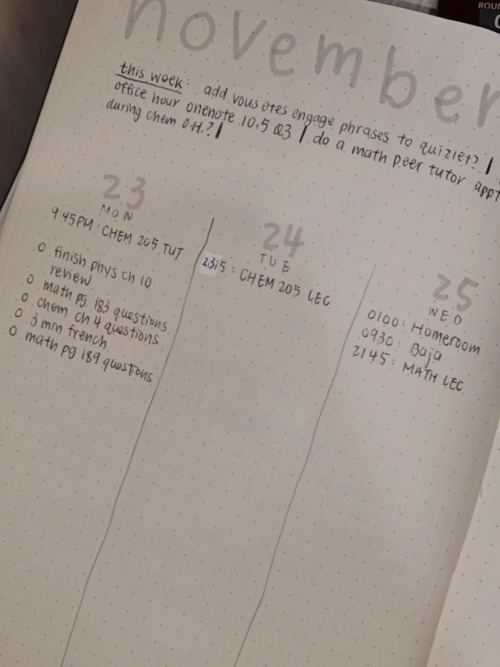 november
this week: add vous etes engage phrases to quizlet?
office hour onenote 10.5 Q3 | do a math peer tutor appt
during chem O.H.?
23
MON
9:45PM: CHEM 205 TUT
o finish phys ch 10
review
o math pg 183 questions
o chem ch 4 questions
o 3 min french
o math pg 189 questions
24
TUE
2315: CHEM 205 LEC
25
WED
0100: Homeroom
0930: Baja
2145: MATH LEC
ROUN